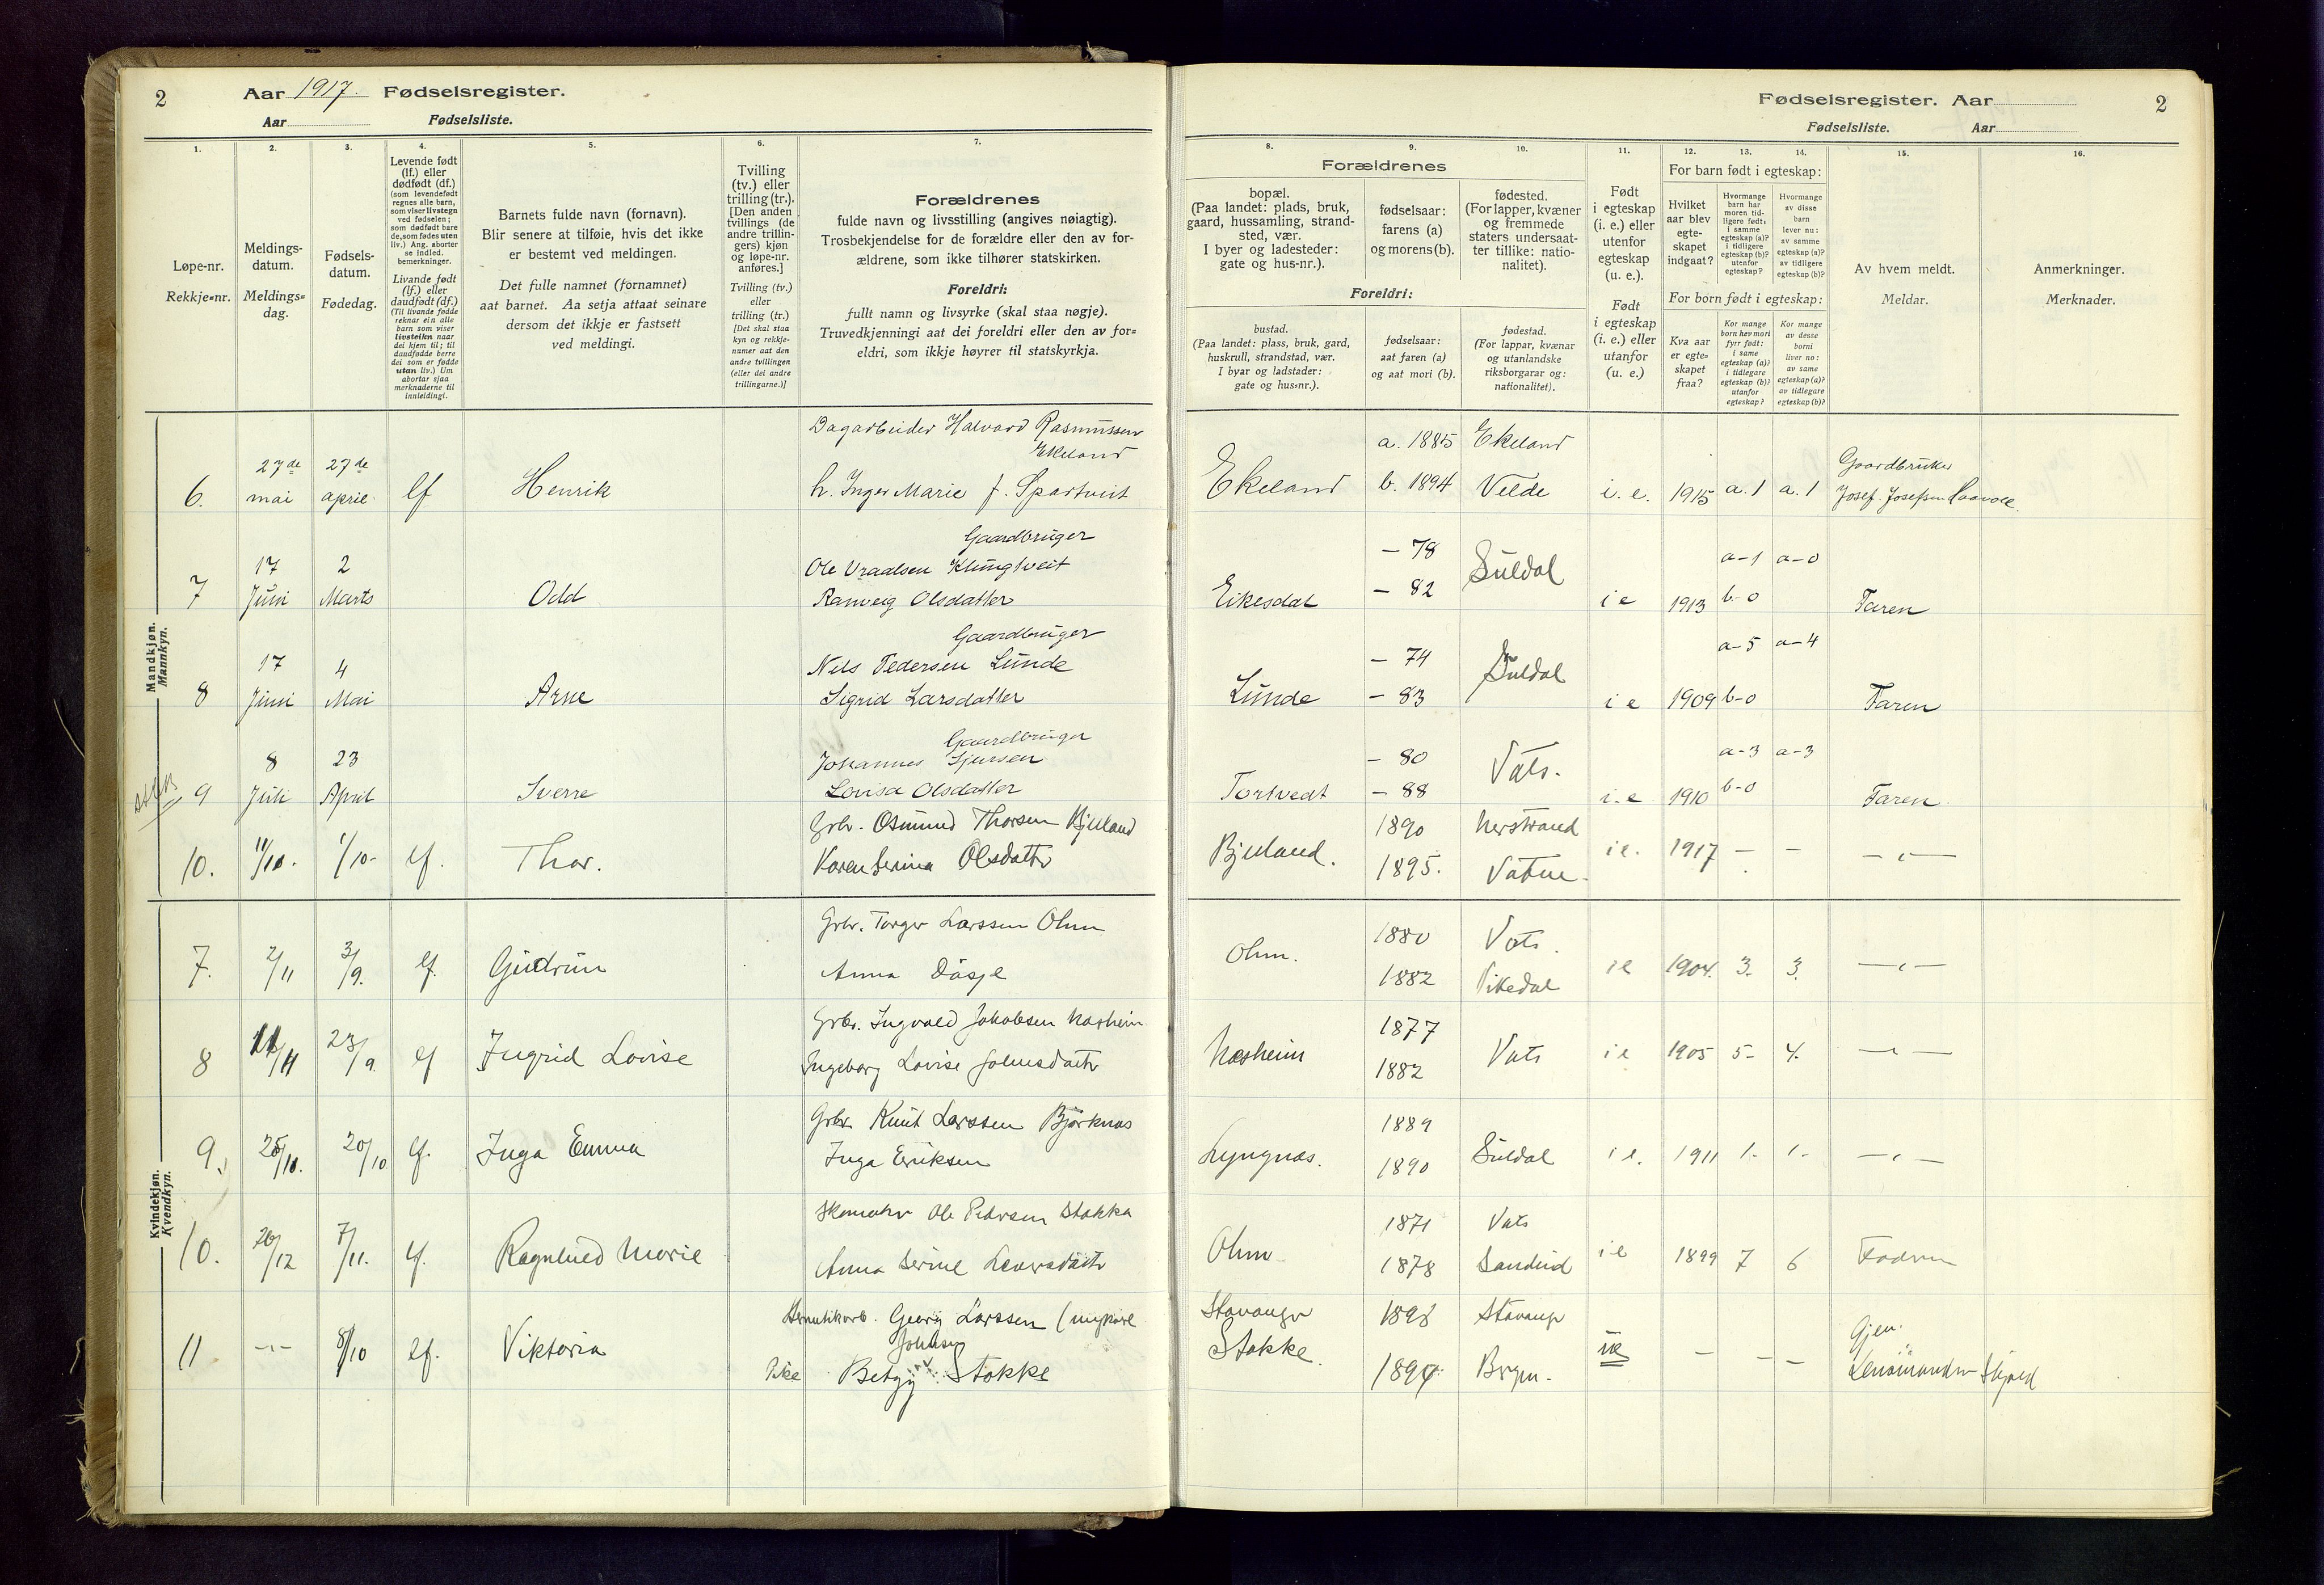 2
Aar 1917. Fødselsregister.
Aar Fødselsliste.
1.
Løpe-nr.
Rekkje-nr.
2.
Meldings-
datum.
Meldings-
dag.
3.
Fødsels-
datum.
Fødedag.
4.
Levende født
(lf.) eller
dødfødt (df.)
(som levendefødt
regnes alle barn,
som viser livstegn
ved fødselen;
som dødfødt bare
de, som fødes uten
liv.) Ang. aborter
se indled.
bemerkninger.
Livande født
(lf.) eller
daudfødt (df.)
(Til livande fødde
reknar ein alle
barn som viser
livsteikn naar
dei kjem til; til
daudfødde berre
dei som er fødde
utan liv.) Um
abortar sjaa
merknaderne til
innleidingi.
5.
Barnets fulde navn (fornavn).
Blir senere at tilføie, hvis det ikke
er bestemt ved meldingen.
Det fulle namnet (fornamnet)
aat barnet. Aa setja attaat seinare
dersom det ikkje er fastsett
ved meldingi.
6.
Tvilling
(tv.) eller
trilling (tr.).
[Den anden
tvillings (de
andre trillin-
gers) kjøn
og løpe-nr.
anføres.]
Tvilling (tv.)
eller
trilling (tr.)
[Det skal staa
kyn og rekkje-
numer aat den
andre tvillingen
(eller dei andre
trillingarne.)]
7.
Forældrenes
fulde navn og livsstilling (angives nøiagtig).
Trosbekjendelse for de forældre eller den av for-
ældrene, som ikke tilhører statskirken.
Foreldri:
fullt namn og livsyrke (skal staa nøgje).
Truvedkjenningi aat dei foreldri eller den av for-
eldri, som ikkje høyrer til statskyrkja.
Fødselsregister. Aar 2
Fødselsliste. Aar
8.
Forældrenes
bopæl.
(Paa landet: plads, bruk,
gaard, hussamling, strand-
sted, vær.
I byer og ladesteder:
gate og hus-nr.).
Foreldri:
bustad.
(Paa landet: plass, bruk, gard,
huskrull, strandstad, vær.
I byar og ladstader:
gate og hus-nr.).
9.
fødselsaar:
farens (a)
og morens (b).
fødselsaar:
aat faren (a)
og aat mori (b).
10.
fødested.
(For lapper, kvæner
og fremmede
staters undersaat-
ter tillike: natio-
nalitet).
fødestad.
(For lappar, kvænar
og utanlandske
riksborgarar og:
nationalitet).
11.
Født
i egteskap
(i. e.) eller
utenfor
egteskap
(u. e.).
Født
i egteskap
(i. e.) eller
utanfor
(u. e.)
12. 13. 14.
For barn født i egteskap:
Hvilket
aar blev
egte-
skapet
indgaat?
Hvormange
barn har
moren tid-
ligere født:
i samme
egteskap (a)?
i tidligere
egteskap (b)?
utenfor
egteskap?
Hvormange
av disse
barn
lever nu:
av samme
egteskap (a)?
av tidligere
egteskap (b)?
For born født i egteskap:
Kva aar
er egte-
skapet
fraa?
Kor mange
born hev mori
fyrr født:
i same
egteskap (a)?
i tidlegare
egteskap (b)?
utanfor
egteskap?
Kor mange
av desse
borni
liver no:
av same
egteskap (a)?
av tidlegare
egteskap (b)?
15.
Av hvem meldt.
Meldar.
16.
Anmerkninger.
Merknader.
Mandkjøn.
Mannkyn.
6. 27de mai 27de april lf Henrik
Dagarbeider Halvard Rasmussen
Ekeland
h. Inger Marie f. Spartveit
Ekeland a. 1885 Ekeland
b. 1894 Velde i. e. 1915 a. 1 a. 1
Gaardbruker
Josef Josefsen
7 17 Juni 2 Marts Odd
Gaardbruger
Ole Vraalsen Klungtveit
Ranveig Olsdatter
Eikesdal - 78 - 82 Suldal i e 1913 a-1 b-0 a-0 Faren
8 17 Juni 4 Mai Arne
Gaardbruger
Nils Pedersen Lunde
Sigrid Larsdatter
Lunde - 74 - 83 Suldal i e 1909 a-5 b-0 a-4 Faren
9 8 Juli 23 April Sverre
Gaardbruger
Johannes Sjursen
Lovisa Olsdatter
Tortvedt - 80 - 88 Vats. i. e 1910 a-3 b-0 a-3 Faren.
10. 11/10. 1/10- lf. Thor.
Grbr. Osmund Thorsen Bjelland
Karen Serina Olsdattr
Bjelland. 1890 Nerstrand
1895. Vatne. i e. 1917 - - -"-
Kvindekjøn.
Kvendkyn.
7. 2/11 3/9. lf. Gudrun
Grbr. Torger Larssen Ohm
Anna Dåsje
Ohm. 1880 Vats.
1882 Vikedal i e 1904. 3. 3. -"-
8 23/9. lf Ingrid Lovise
Grbr. Ingvald Jakobsen Nasheim
Ingeborg Lovise Johnsdattr
Nasheim 1877
1882 Vats i e 1905 5- 4. -"-
9. 25/10. 20/10 lf. Inga Emma
Grbr. Knut Larssen Bjørknes
Inga Eriksen
Lyngnes. 1889
1890 Suldal i e. 1911 1. 1. -"-
10. 20/12 7/11. lf. Ragnhild Marie
Skomakr Ole Pedersen Stakka
Anna Serine
Ohm 1871 Vats
1878 Sandeid i e 1899 7 6 Fadren
11 -"- 8/10 lf. Viktoria
Hermetikarb. Georg Larssen (ungkarl
Johnsen
Pike Betzy Stokke
Stavanger 1898 Stavangr
Stokke. 1894 Brgn. ue - - -
Gjen.
Lensmanden Skjold